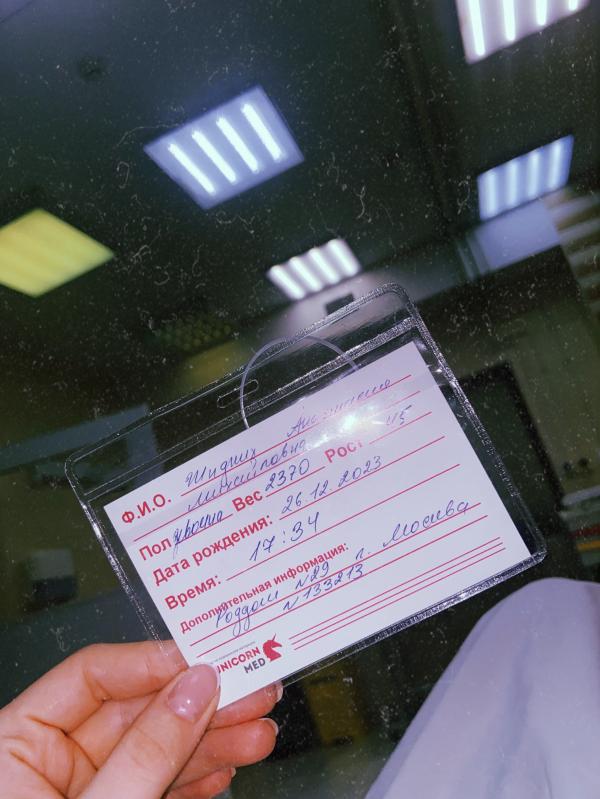 Ф.И.О. Шидких Анастасия
Михайловна
Пол девочка Вес 2370 Рост 45
Дата рождения: 26.12.2023
Время: 17:34
Дополнительная информация:
Роддом №29 г. Москва
№133213
UNICORN
MED